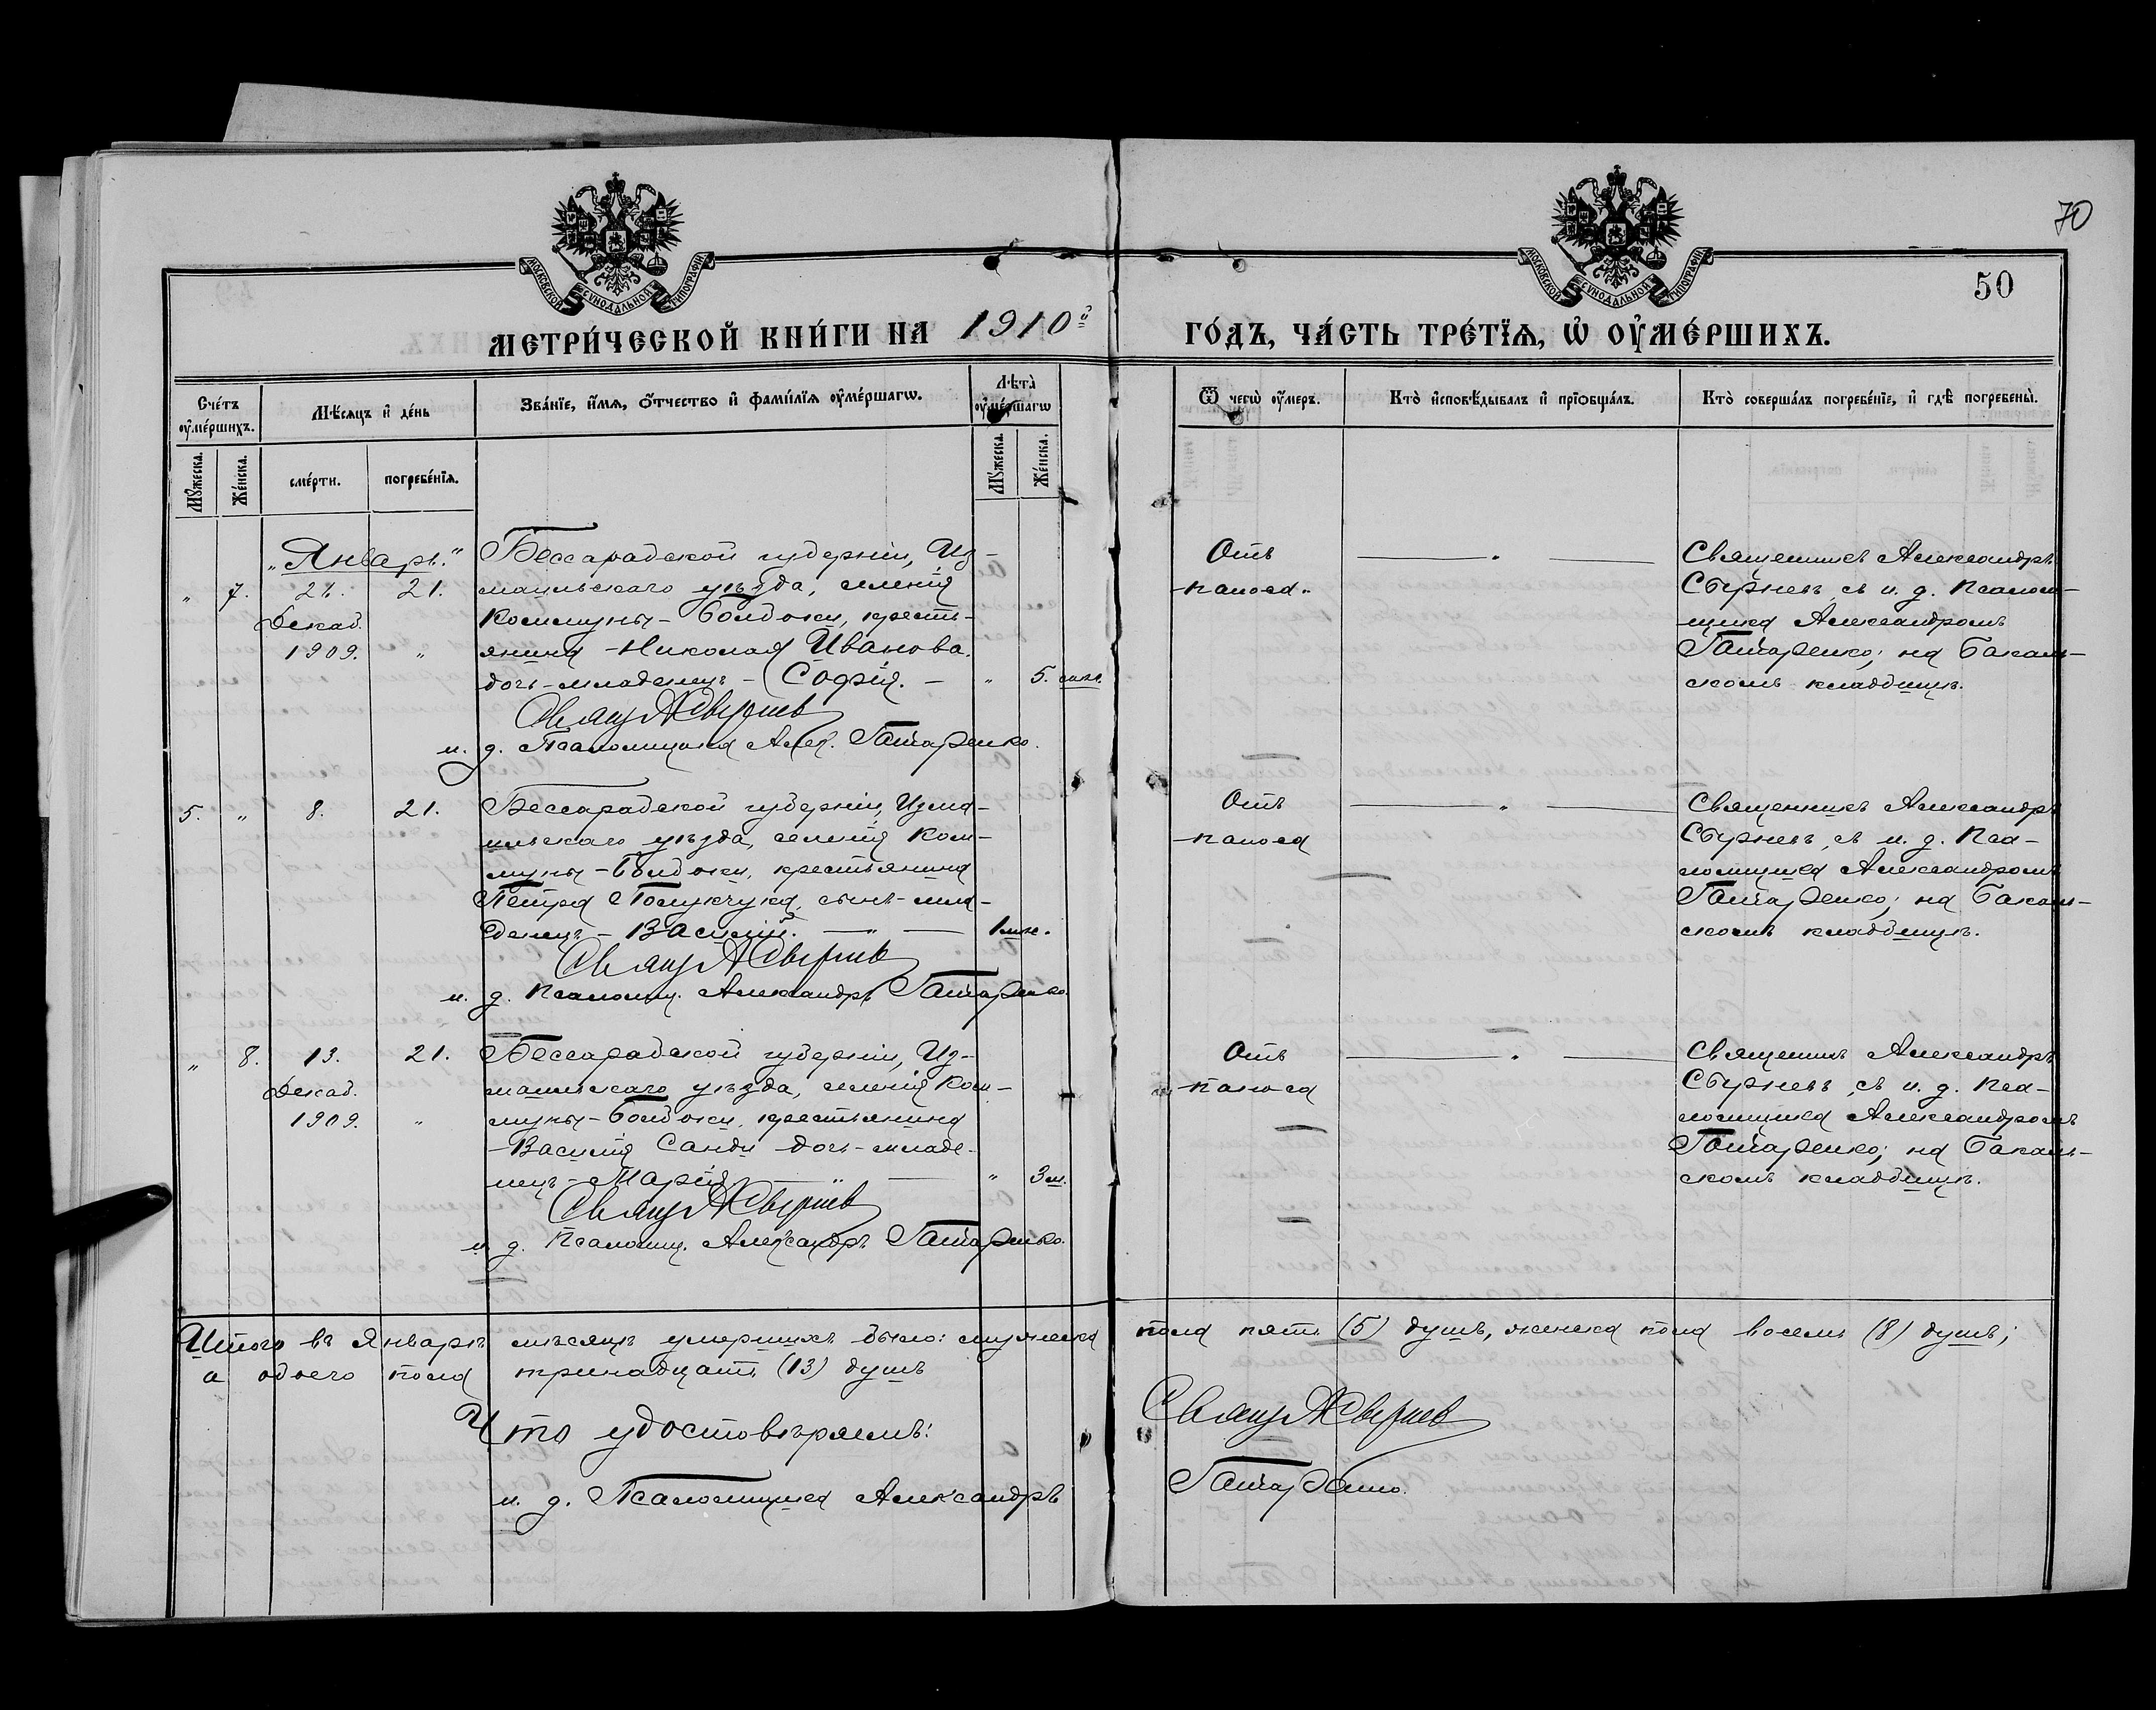 70
50
МОСКОВСКОЙ СѴНОДАЛЬНОЙ ТИПОГРАФІИ
МОСКОВСКОЙ СѴНОДАЛЬНОЙ ТИПОГРАФІИ
МЕТРИ́ЧЕСКОЙ КНИ́ГИ НА 1910й ГО́ДЪ, ЧА́СТЬ ТРЕ́ТЇѦ, Ѡ҆ ОУ҆МЕ́РШИХЪ.
Сче́тъ оу҆ме́ршихъ.
Мꙋ́жеска.
Же́нска.
Мѣ́сѧцъ и҆ де́нь
сме́рти.
погребе́нїѧ.
Зва́нїе, и҆́мѧ, ѻ҆́тчество и҆ фами́лїѧ оу҆ме́ршагѡ.
Лѣта̀ оу҆ме́ршагѡ
Мꙋ́жеска.
Же́нска.
Ѿ чегѡ̀ оу҆́меръ.
Кто̀ и҆сповѣ́дывалъ и҆ прїѻбща́лъ.
Кто̀ соверша́лъ погребе́нїе, и҆ гдѣ̀ погребены̀.
„Январь.“
„ 7. 21.
Декаб.
1909. „
Бессарабской губерніи, Из-
маильскаго уѣзда, селенія
Коммуны-Болдоки, кресть-
янина Николая Иванова.
дочь-младенецъ - Софія. - „ 5.
Свящ А Свирнев
и. д. Псаломщика Алек. Гатаренко.
Отъ
поноса.
Священникъ Александръ
съ и. д. Псалом-
щика Александромъ
Гатаренко; на Бакаль-
скомъ кладбищѣ.
5. „ 8. 21.
Бессарабской губерніи, Изма-
ильскаго уѣзда, селенія Ком-
муны-Болдоки, крестьянина
Петра сынъ-мла-
денецъ - Василій. - „ - 1 мѣс.
и. д. Псаломщ. Александръ Гатаренко.
Отъ
поноса
Священникъ Александръ
съ и. д. Пса-
ломщика Александромъ
Гатаренко; на Бакаль-
скомъ кладбищѣ.
„ 8. 13. 21.
Декаб.
1909. „
Бессарабской губерніи, Из-
маильскаго уѣзда, селенія Ком-
муны-Болдоки, крестьянина
Василія Санди дочь-младе-
нецъ - Марія „ 3 м.
и. д. Псаломщ. Александръ Гатаренко.
Отъ
поноса
Священникъ Александръ
съ и. д. Пса-
ломщика Александромъ
Гатаренко; на Бакаль-
скомъ кладбищѣ.
Итого въ Январѣ мѣсяцѣ умершихъ было: мужеска пола пять (5) душъ, женска пола восемь (8) душъ;
а обоего пола тринадцать (13) душъ
Что удостовѣряемъ:
и. д. Псаломщика Александръ Гатаренко.